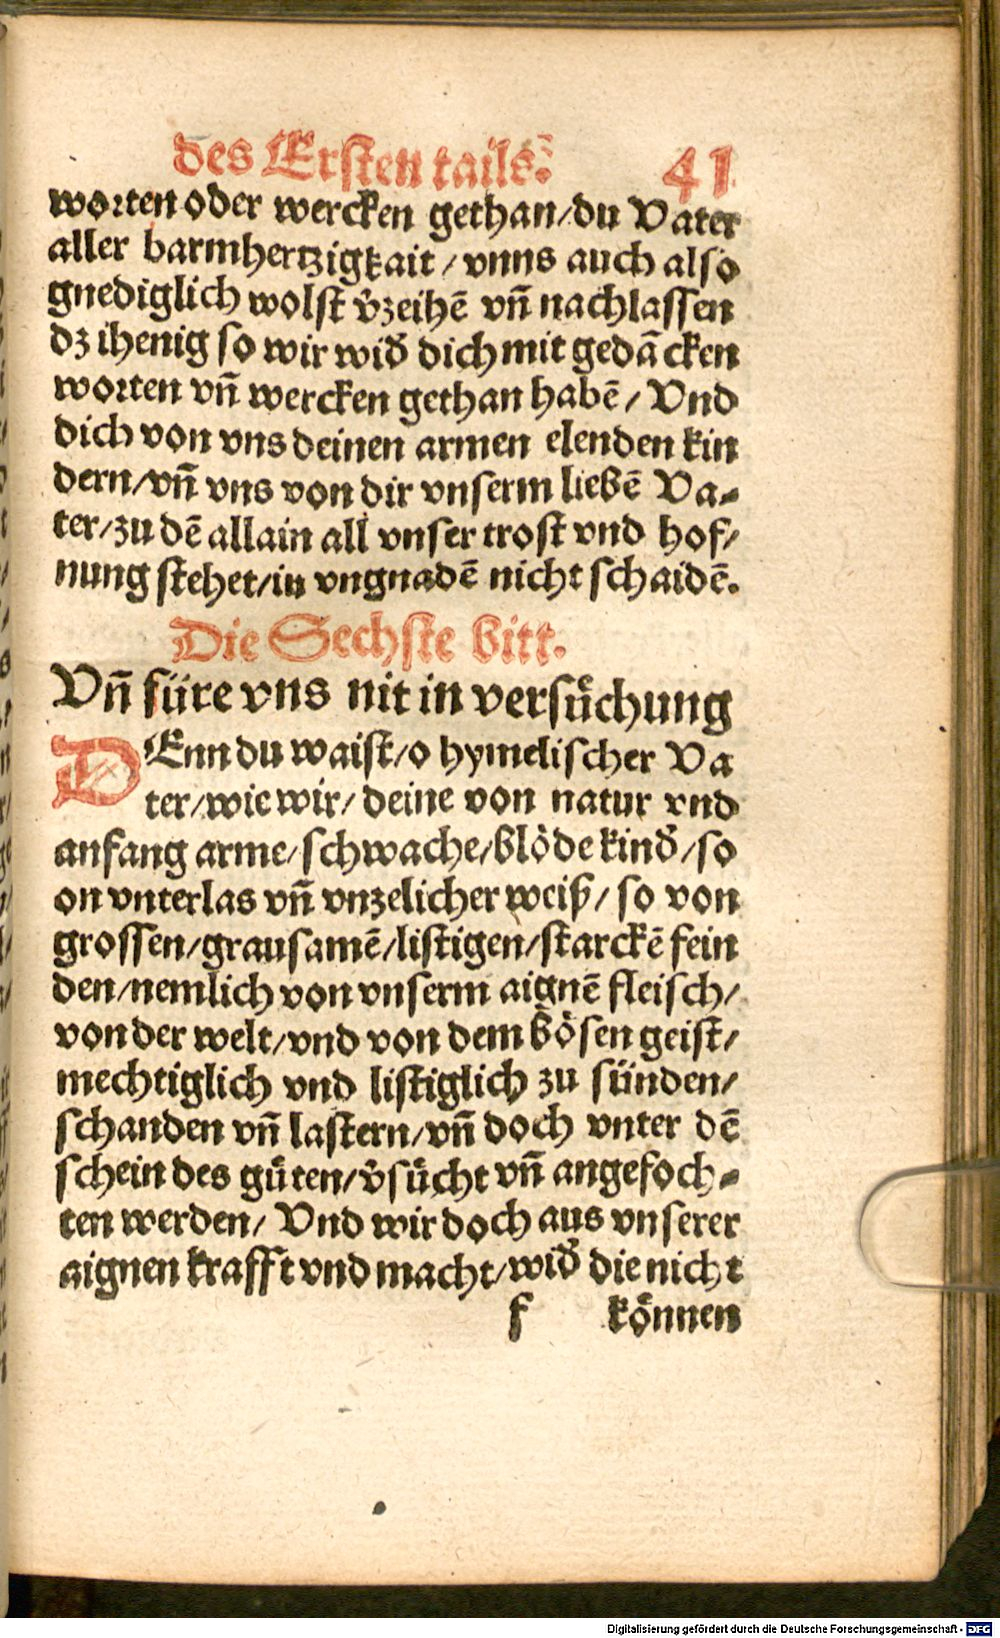 des Ersten tails. 41
worten oder wercken gethan/du Vater
aller barmhertzigkait/vnns auch also
gnediglich wolst v̾zeihē vn̄ nachlassen
dz ihenig so wir wid̾ dich mit gedācken
worten vn̄ wercken gethan habē/Vnd
dich von vns deinen armen elenden kin
dern/vn̄ vns von dir vnserm liebē Va-
ter/zu dē allain all vnser trost vnd hof/
nung stehet/in vngnadē nicht schaidē.
Die Sechste bitt.
Vn̄ füre vns nit in versuͦchung
DEnn du waist/o hymelischer Va
ter/wie wir/deine von natur vnd
anfang arme/schwache/blöde kind̾/so
on vnterlas vn̄ vnzelicher weiß/so von
grossen/grausamē/listigen/starckē fein
den/nemlich von vnserm aignē fleisch/
von der welt/vnd von dem bösen geist/
mechtiglich vnd listiglich zu sünden/
schanden vn̄ lastern/vn̄ doch vnter dē
schein des guͦten/v̾suͦcht vn̄ angefoch-
ten werden/Vnd wir doch aus vnserer
aignen krafft vnd macht/wid̾ die nicht
f können
Digitalisierung gefördert durch die Deutsche Forschungsgemeinschaft - DFG